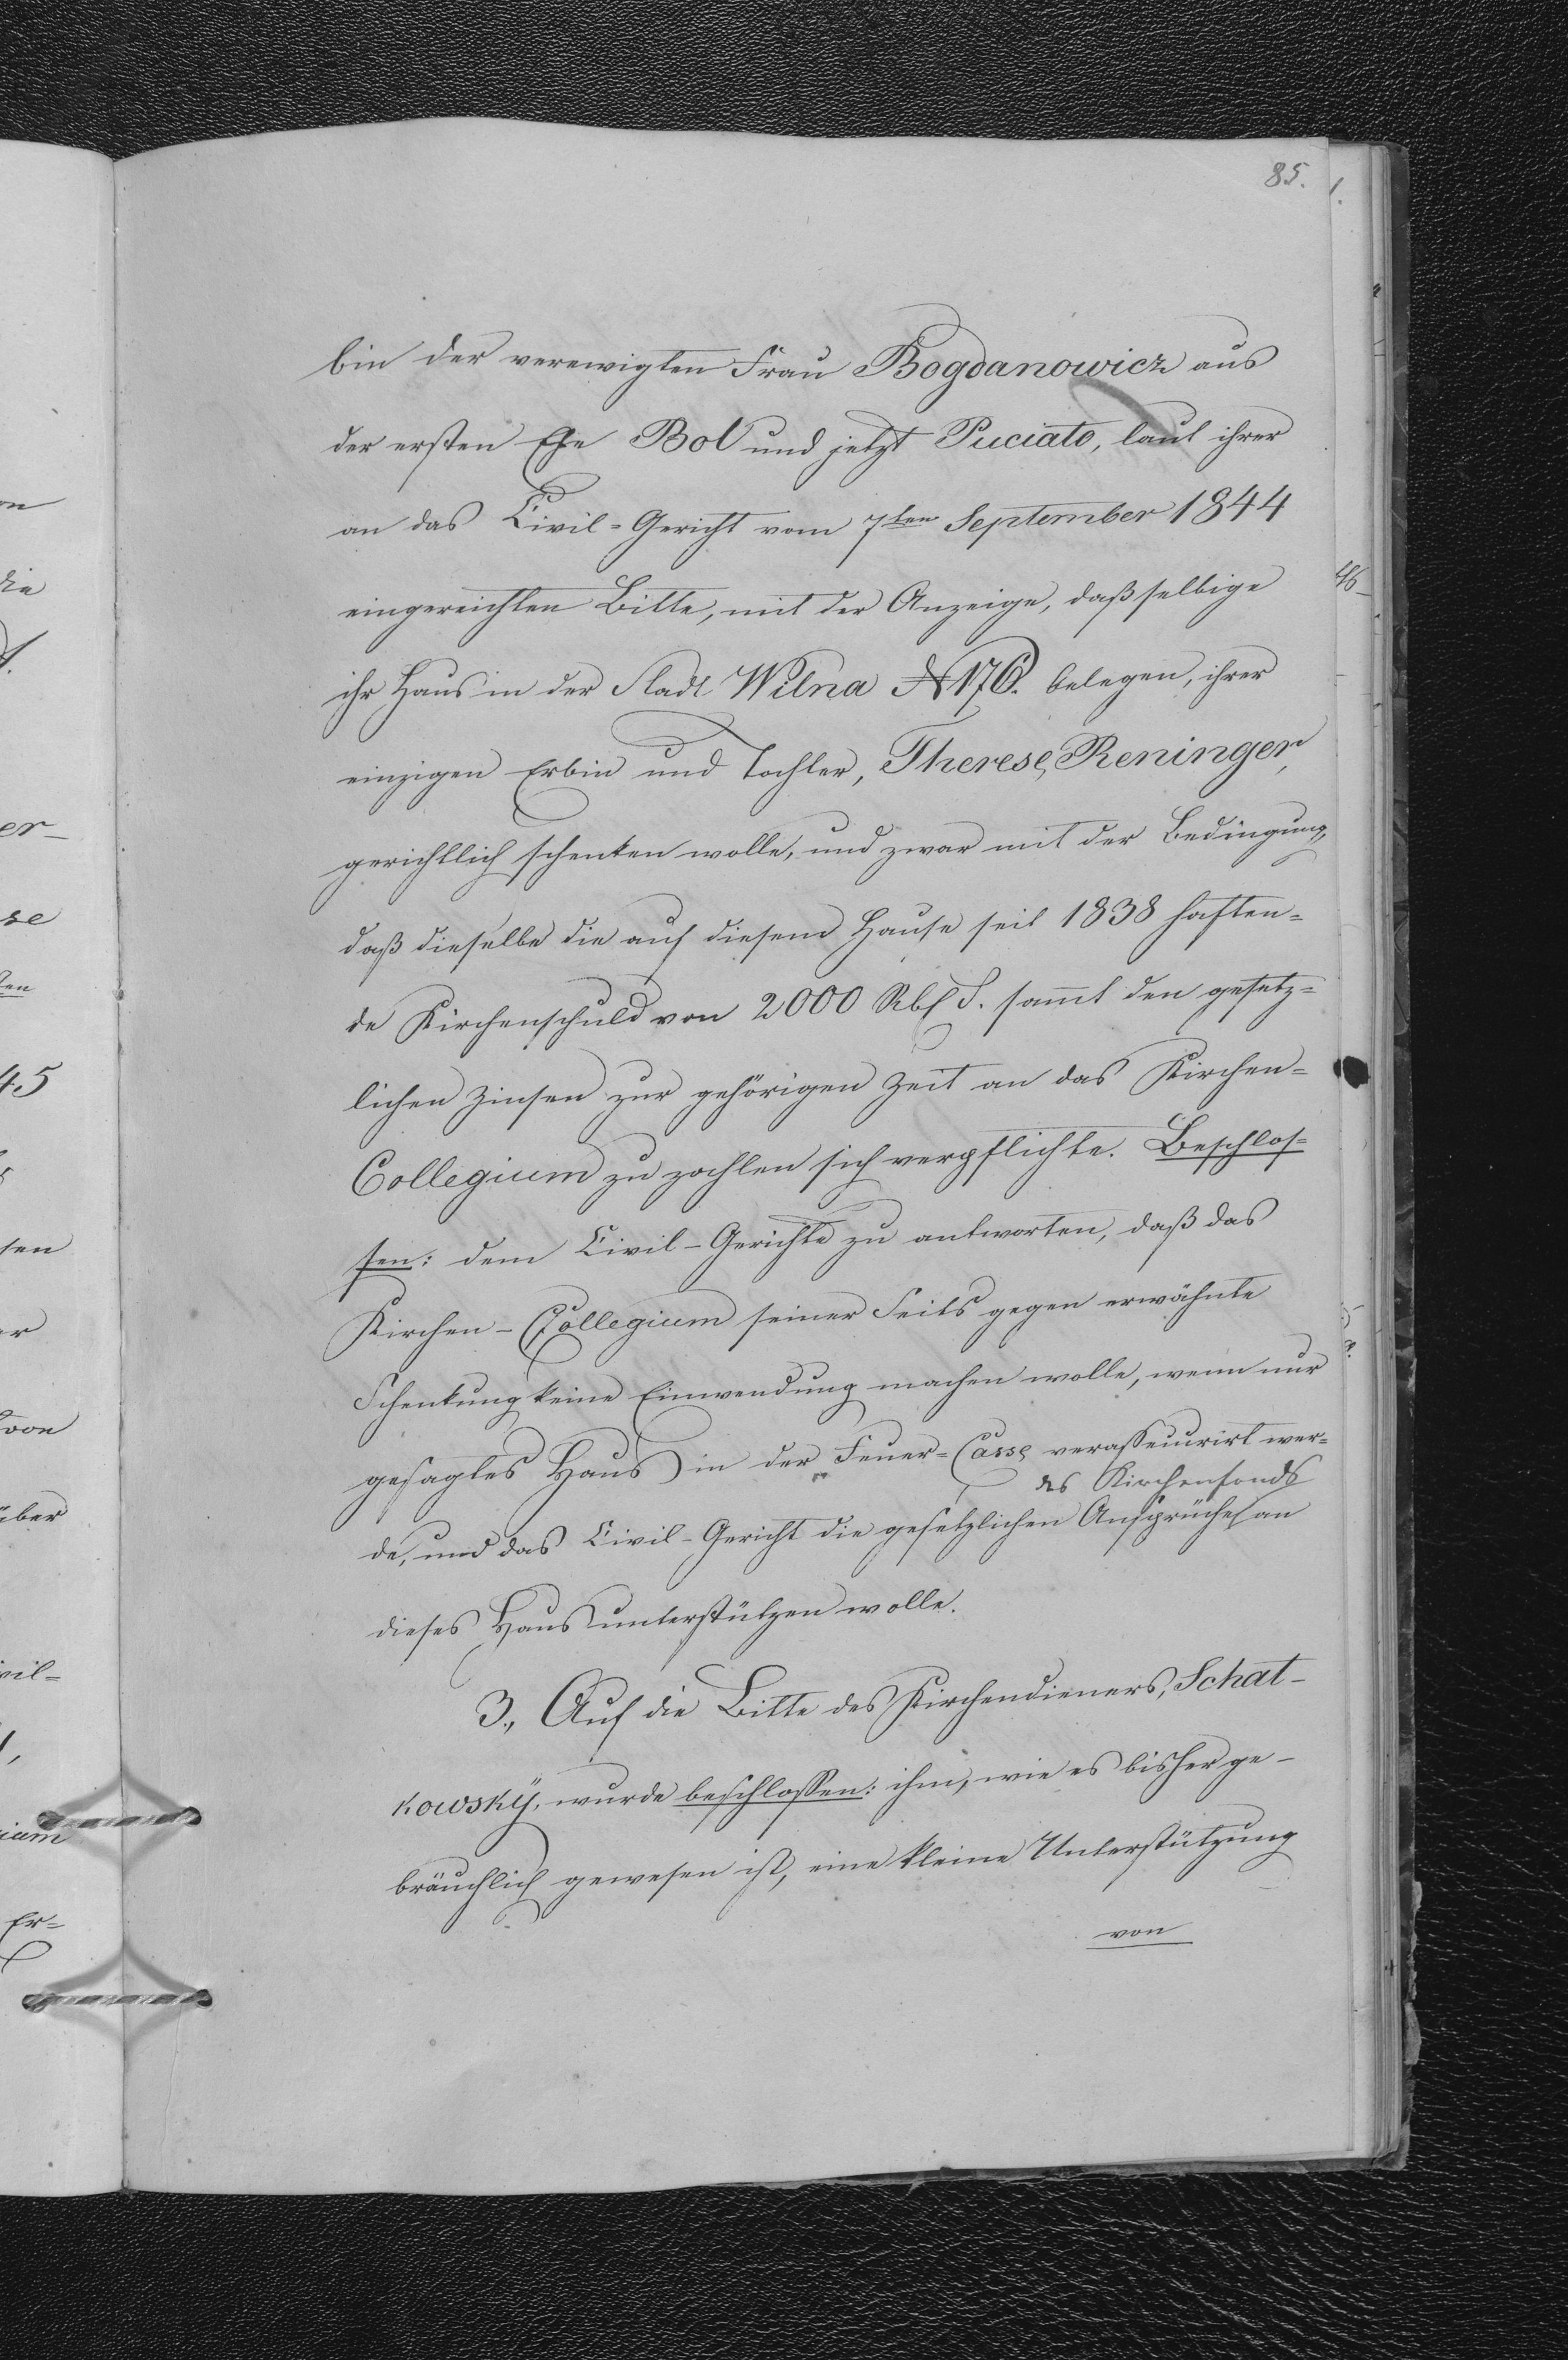 85.
bin der verewigten Frau Bogdanowicz aus
der ersten Ehe Bol und jetzt Puciato, laut ihrer
an das Civil-Gericht vom 7ten September 1844
eingereichten Bitte, mit der Anzeige, daß selbige
ihr Haus in der Stadt Wilna № 176. belegen, ihrer
einzigen Erbin und Tochter, Therese Reninger,
gerichtlich schenken wolle, und zwar mit der Bedingung,
daß dieselbe die auf diesem Hause seit 1838 haften-
de Kirchenschuld von 2000 Rbl S. sammt den gesetz-
lichen Zinsen zur gehörigen Zeit an das Kirchen-
Collegium zu zahlen sich verpflichte. Beschlos-
sen: dem Civil-Gerichte zu antworten, daß das
Kirchen-Collegium seiner Seits gegen erwähnte
Schenkung keine Einwendung machen wolle, wenn nur
gesagtes Haus in der Feuer-Casse verasseurirt wer-
des Kirchenfonds
de, und das Civil-Gericht die gesetzlichen Ansprüche an
dieses Haus unterstützen wolle.
3., Auf die Bitte des Kirchendieners, Schat-
kowsky, wurde beschlossen: ihm, wie es bisher ge-
bräuchlich gewesen ist, eine kleine Unterstützung
von